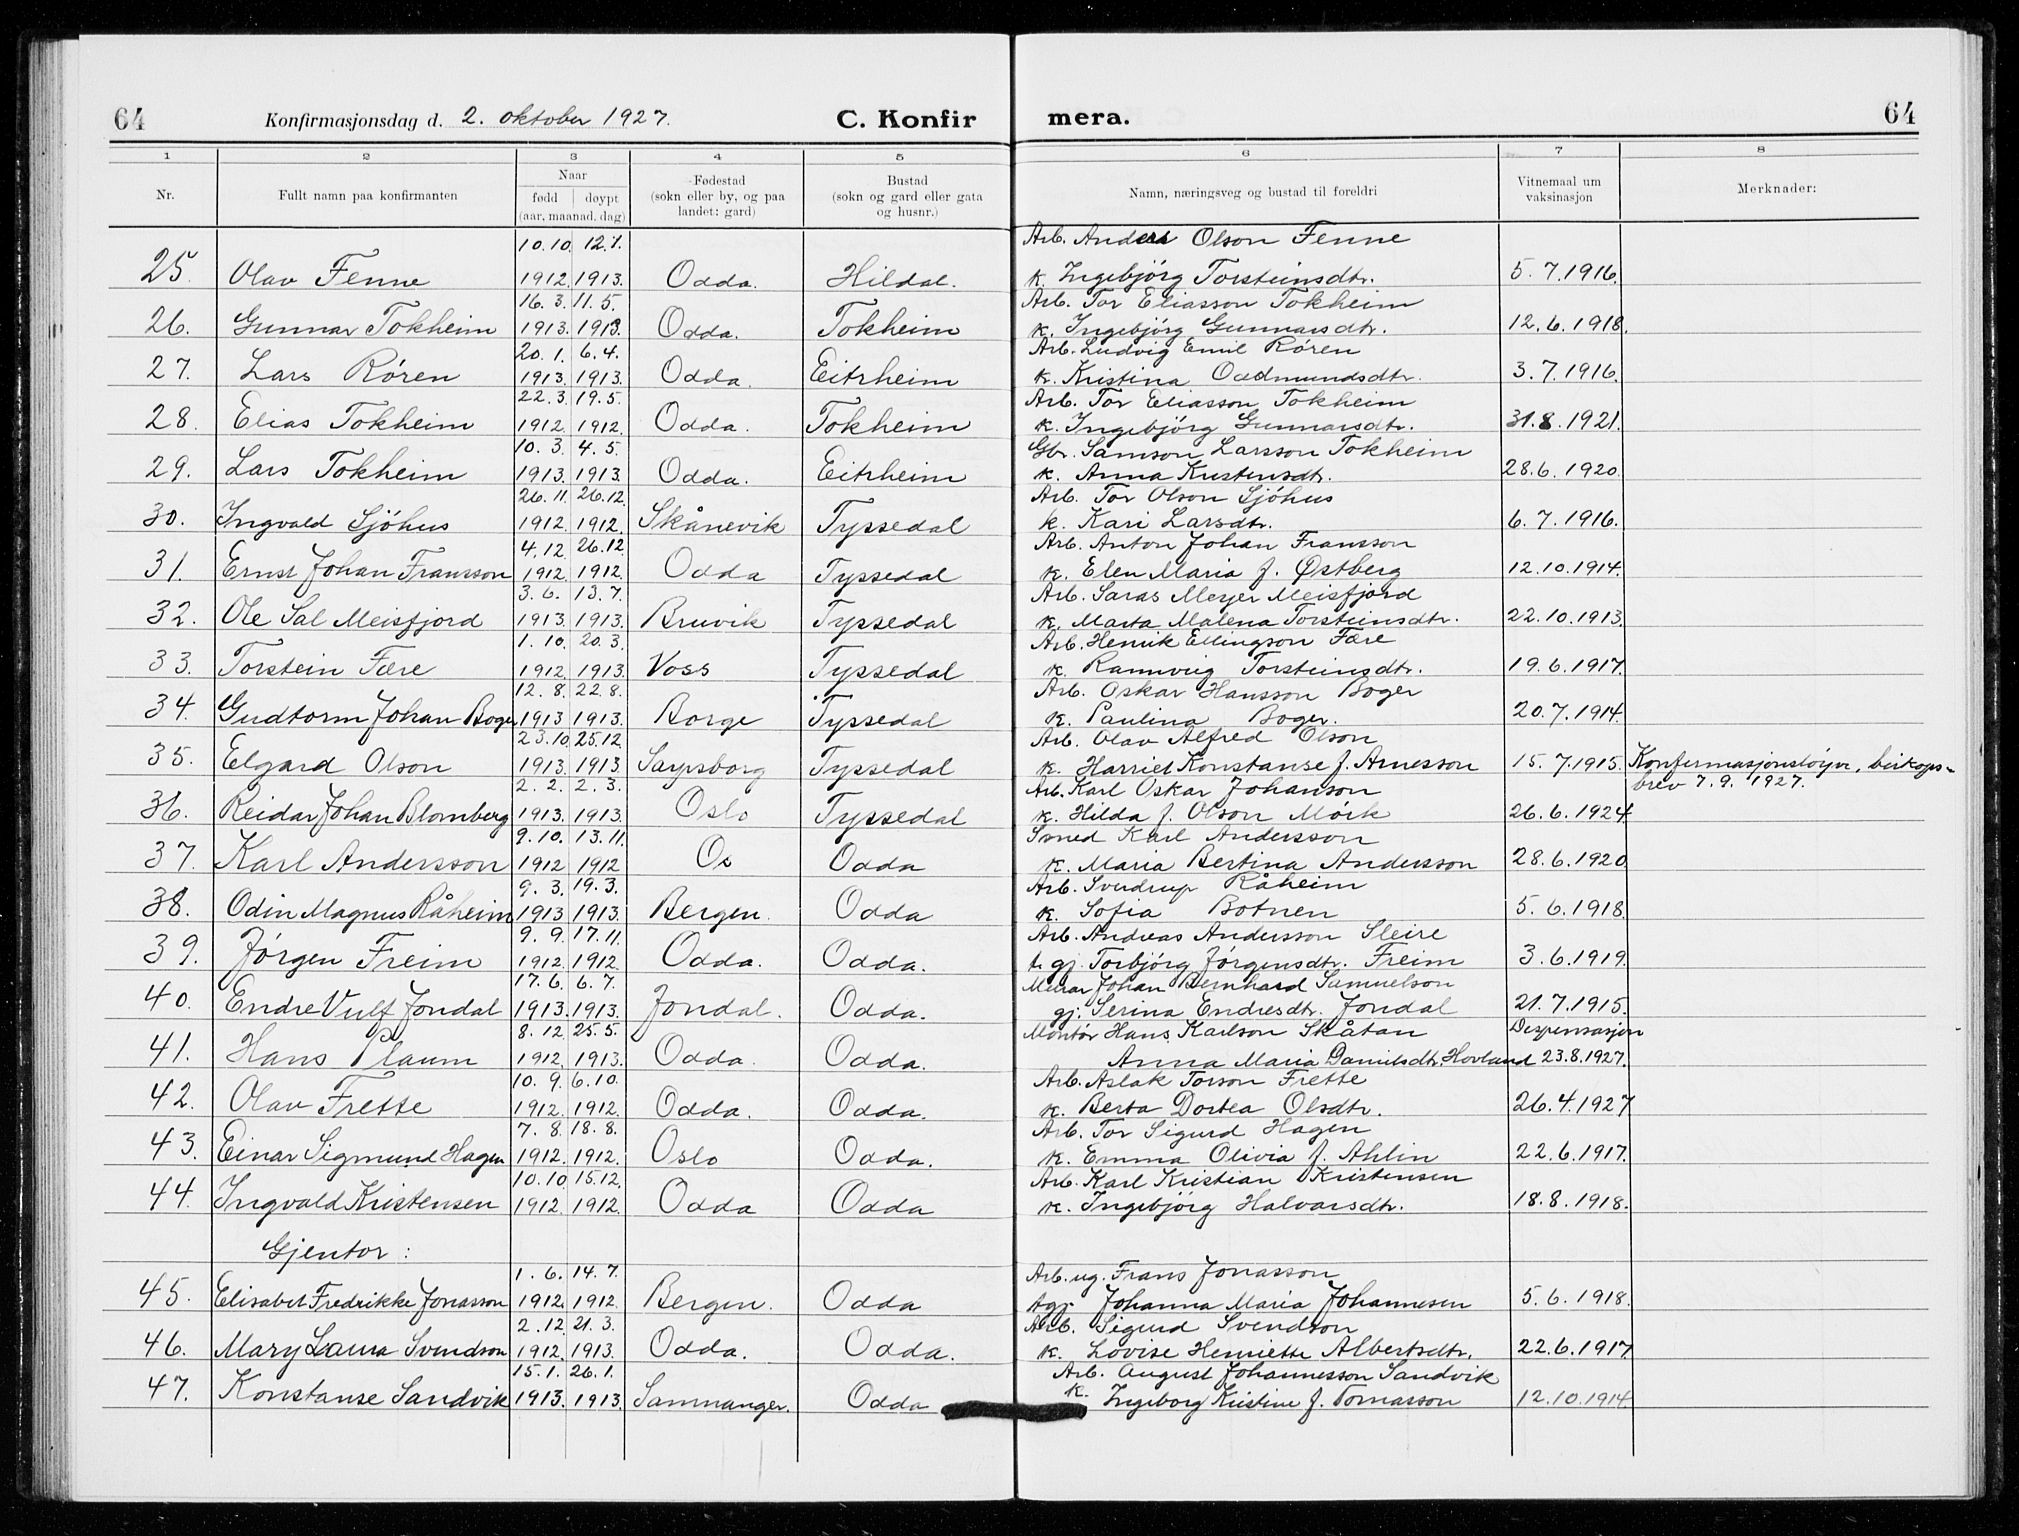 64 Konfirmasjonsdag d. 2. oktober 1927. C. Konfir mera. 64
1 2 3 4 5 6 7 8
Nr. Fullt namn paa konfirmanten Naar Fødestad Bustad Namn, næringsveg og bustad til foreldri Vitnemaal um Merknader:
fødd døypt (sokn eller by, og paa (sokn og gard eller gata vaksinasjon
(aar, maanad, dag) landet: gard) og husnr.)
10.10. 12.1. Arb. Anders Olson Fenne
25. Olav Fenne 1912. 1913. Odda. Hildal. k. Ingebjörg Torsteinsdtr. 5.7.1916.
16.3. 11.5. Arb. Tor Eliasson Tokheim
26. Gunnar Tokheim 1913. 1913. Odda. Tokheim k. Ingebjörg Gunnarsdtr. 12.6.1918.
20.1. 6.4. Arb. Ludvig Emil Róren
27. Lars Róren 1913. 1913. Odda. Eitrheim k. Kristina Oddmundsdtr. 3.7.1916.
22.3. 19.5. Arb. Tor Eliasson Tokheim
28. Elias Tokheim 1912. 1912. Odda. Tokheim k. Ingebjörg Gunnarsdtr. 31.8.1921.
10.3. 4.5. Gbr. Samson Larsson Tokheim
29. Lars Tokheim 1913. 1913. Odda. Eitrheim k. Anna Kristensdtr. 28.6.1920.
26.11. 26.12. Arb. Tor Olson Sjóhus
30. Ingvald Sjóhus 1912. 1912. Skånevik Tyssedal k. Kari Larsdtr. 6.7.1916.
4.12. 26.12. Arb. Anton Johan Fransson
31. Ernst Johan Fransson 1912. 1912. Odda Tyssedal k. Elen Maria f. Østberg 12.10.1914.
3.6. 13.7. Arb. Saras Meyer Meisfjord
32. Ole Sal Meisfjord 1913. 1913. Bruvik Tyssedal k. Marta Malena Torsteinsdtr. 22.10.1913.
1.10. 20.3. Arb. Henrik Ellingson Fære
33. Torstein Fære 1912. 1913. Voss Tyssedal k. Rannveig Torsteinsdtr. 19.6.1917.
12.8. 22.8. Arb. Oskar Hansson Boger
34. Gudtorm Johan Boger 1913 1913. Borge Tyssedal k. Paulina Boger. 20.7.1914.
23.10. 25.12. Arb. Olav Alfred Olson
35. Elgard Olson 1913. 1913. Sarpsborg Tyssedal k. Harriet Konstanse f. Arnesson 15.7.1915. Konfermasjonsløyve, biskops-
2.2. 2.3. Arb. Karl Oskar Johanson brev 7.9.1927.
36. Reidar Johan Blomberg 1913. 1913. Oslo Tyssedal k. Hilda f. Olson Mórk 26.6.1924
9.10. 13.11. Smed Karl Andersson
37. Karl Andersson 1912 1912 Os Odda k. Maria Bertina Andersson 28.6.1920
9.3. 19.3. Arb. Sverdrup Råheim
38. Odin Magnus Råheim 1913 1913. Bergen. Odda k. Sofia Botnen 5.6.1918.
9.9. 17.11. Arb. Andreas Andersson Sleire
39. Jórgen Freim 1912. 1912. Odda. Odda. t. gj. Torbjörg Jórgensdtr. Freim 3.6.1919.
17.6. 6.7. Murar Johan Bernhard Samuelson
40. Endre Vulf Jondal 1913. 1913. Jondal. Odda. gj. Serina Endresdtr. Jondal 21.7.1915.
8.12. 25.5. Montör Hans Karlson Skåtan Dispensasjon
41. Hans Plaum 1912. 1913. Odda. Odda. Anna Maria Danielsdtr. Hovland 23.8.1927.
10.9. 6.10. Arb. Aslak Torson Frette
42. Olav Frette 1912. 1912. Odda. Odda. k. Berta Dortea Olsdtr. 26.4.1927
7.8. 18.8. Arb. Tor Sigurd Hagen
43. Einar Sigmund Hagen 1912. 1912. Oslo Odda. k. Emma Olivia f. Ahlin 22.6.1917.
10.10. 15.12. Arb. Karl Kristian Kristensen
44. Ingvald Kristensen 1912. 1912. Odda Odda k. Ingebjörg Halvarsdtr. 18.8.1918.
Gjentor:
1.6. 14.7. Arb. ug. Frans Jonasson
45. Elisabet Fredrikke Jonasson 1912. 1912. Bergen. Odda tgj. Johanna Maria Johannesen 5.6.1918.
2.12. 21.3. Arb. Sigurd Svendson
46. Mary Laura Svendson 1912. 1913. Odda. Odda. k. Lovise Henriette Albertsdtr. 22.6.1917
15.1. 26.1. Arb. August Johannesson Sandvik
47. Konstanse Sandvik 1913. 1913. Samnanger. Odda k. Ingeborg Kristine f. Tomasson 12.10.1914